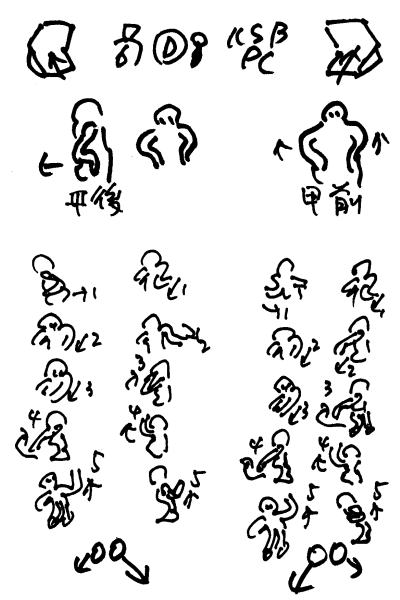 D KSB
PC
平後 甲前
1 1 1 1
2 2 2 2
3 3 3 3
4 4 4 4
5 5 5 5